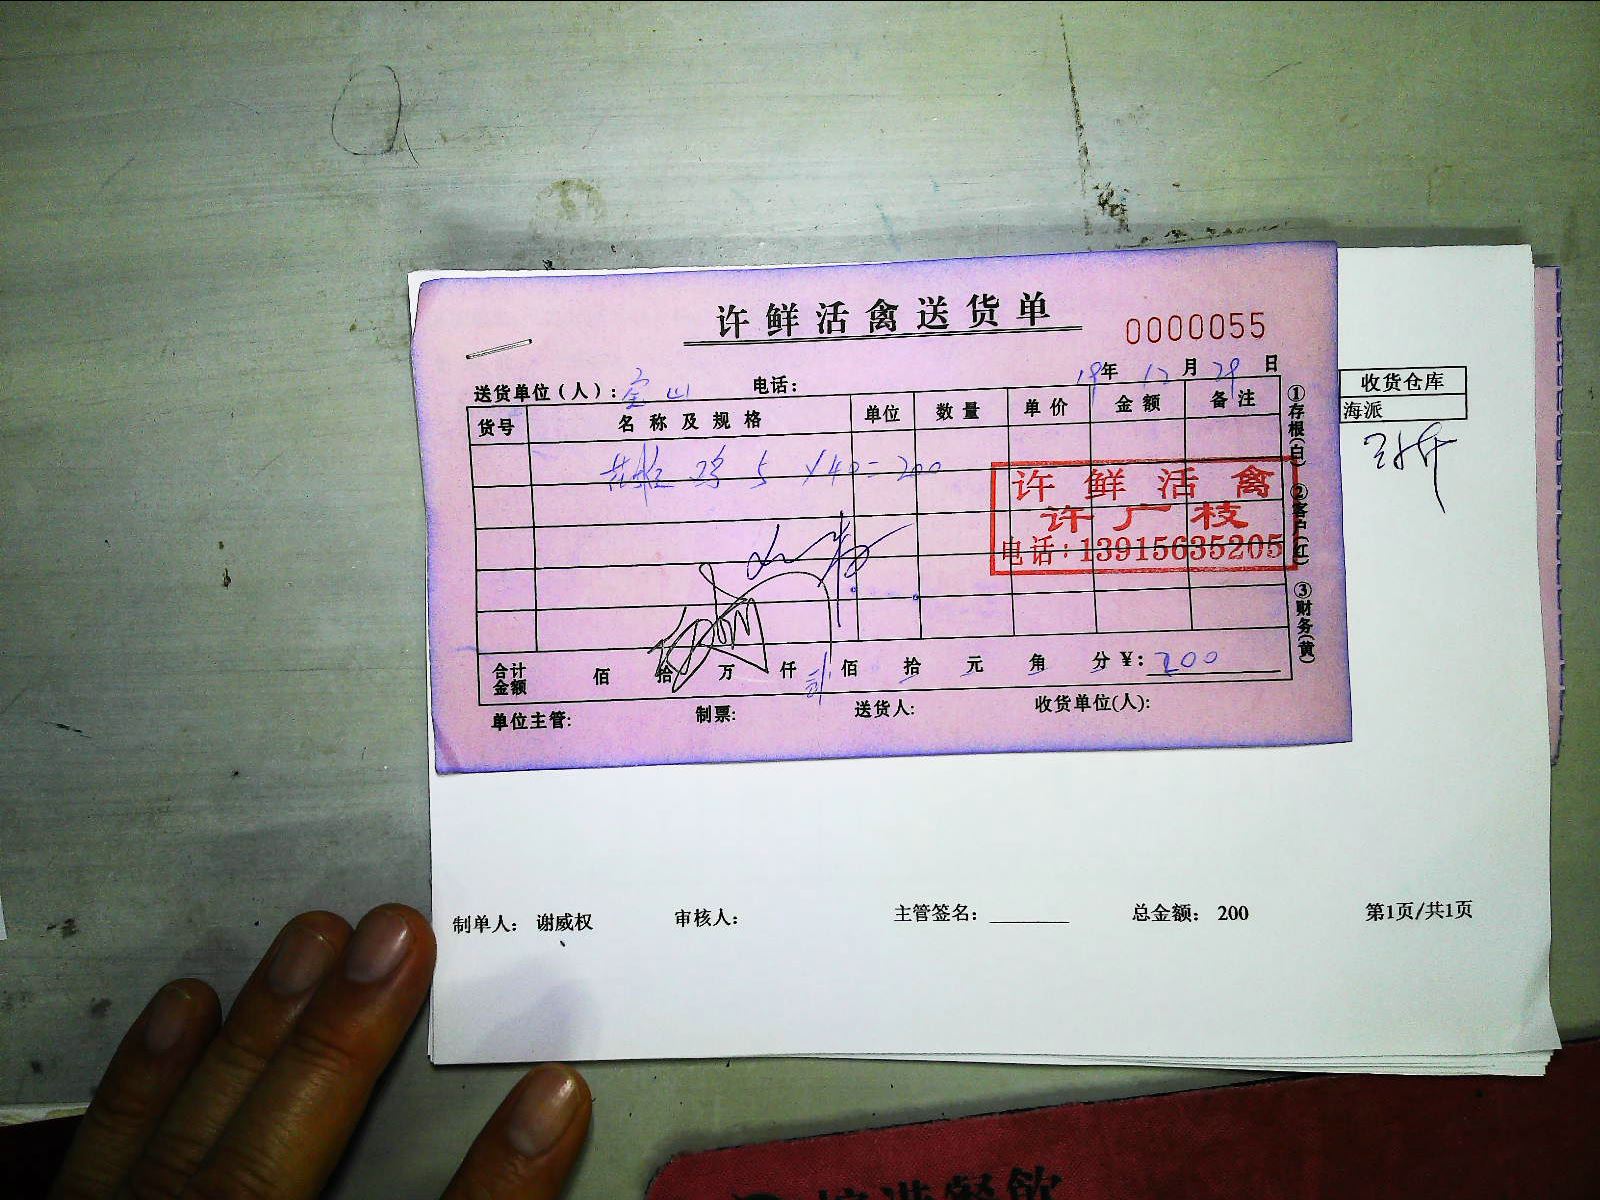 许鲜活禽送货单
0000055
送货单位(人): 宝山 电话: 19年 12月 29日
货号 名称及规格 单位 数量 单价 金额 备注
鸡 5 ×40=200
许鲜活禽
许广枝
电话:13915635205
合计金额 佰 拾 万 仟 贰佰 拾 元 角 分 ¥: 200
单位主管: 制票: 送货人: 收货单位(人):
①存根(白) ②客户(红) ③财务(黄)
收货仓库
海派
制单人: 谢威权 审核人: 主管签名: 总金额: 200 第1页/共1页